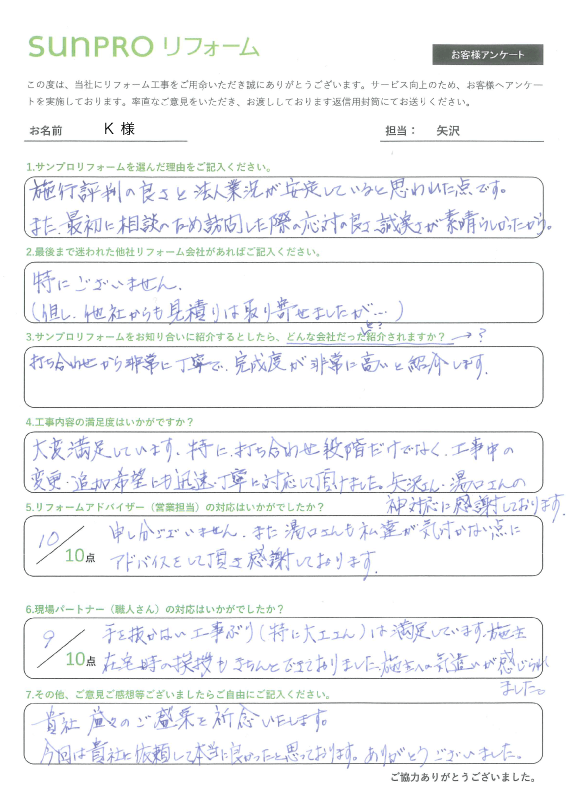 sunPRO リフォーム
お客様アンケート
この度は、当社にリフォーム工事をご用命いただき誠にありがとうございます。サービス向上のため、お客様へアンケー
トを実施しております。率直なご意見をいただき、お渡ししております返信用封筒にてお送りください。
お名前 K 様 担当： 矢沢
1.サンプロリフォームを選んだ理由をご記入ください。
施行評判の良さと法人業況が安定していると思われた点です。
また、最初に相談のため訪問した際の応対の良さ、誠実さが素晴らしかったから。
2.最後まで迷われた他社リフォーム会社があればご記入ください。
特にございません。
（但し、他社からも見積りは取り寄せましたが…）
3.サンプロリフォームをお知り合いに紹介するとしたら、どんな会社だった紹介されますか？ →？
と？
打ち合わせから非常に丁寧で、完成度が非常に高いと紹介します。
4.工事内容の満足度はいかがですか？
大変満足しています。特に、打ち合わせ段階だけでなく、工事中の
変更・追加希望にも迅速・丁寧に対応して頂けました。矢沢さん・湯口さんの
神対応に感謝しております。
5.リフォームアドバイザー（営業担当）の対応はいかがでしたか？
10／10点
申し分ございません。また湯口さんも私達が気付かない点に
アドバイスをして頂き感謝しております。
6.現場パートナー（職人さん）の対応はいかがでしたか？
9／10点
手を抜かない工事ぶり（特に大工さん）は満足しています。施主
在宅時の挨拶もきちんとできておりました。施主への気遣いが感じられ
ました。
7.その他、ご意見ご感想等ございましたらご自由にご記入ください。
貴社 益々のご盛栄を祈念いたします。
今回は貴社に依頼して本当に良かったと思っております。ありがとうございました。
ご協力ありがとうございました。